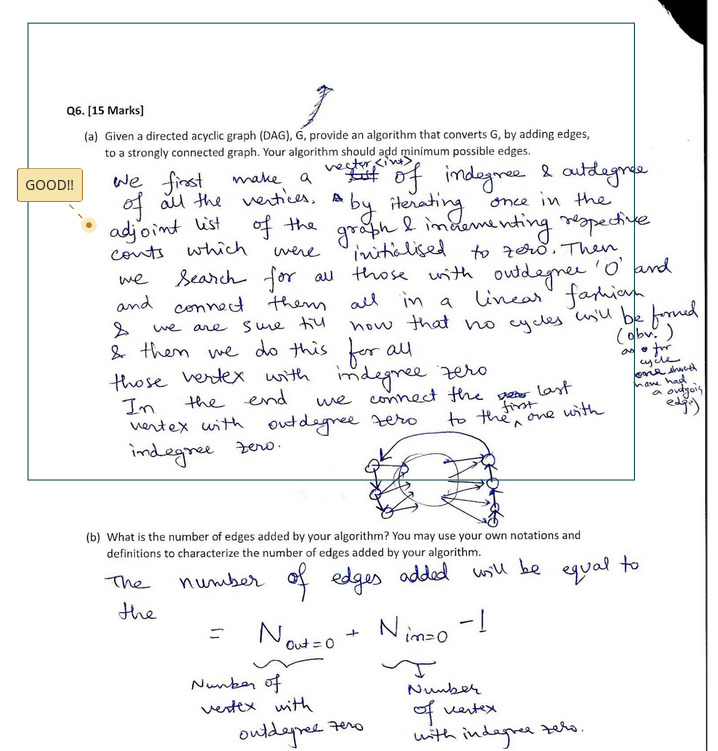 Q6. [15 Marks]
(a) Given a directed acyclic graph (DAG), G, provide an algorithm that converts G, by adding edges,
to a strongly connected graph. Your algorithm should add minimum possible edges.
GOOD!!
vector<int>
we first make a of indegree & outdegree
of all the vertices. by iterating once in the
adjoint list of the graph & incrementing respective
counts which were initialised to zero. Then
we search for all those with outdegree '0' and
and connect them all in a linear fashion
& we are sure till now that no cycles will be formed
(obv.)
as for
cycle
one should
have had
a outgoing
edge)
& then we do this for all
those vertex with indegree zero
In the end we connect the last
vertex with outdegree zero to the first one with
indegree zero.
(b) What is the number of edges added by your algorithm? You may use your own notations and
definitions to characterize the number of edges added by your algorithm.
The number of edges added will be equal to
the
= N out=0 + N in=0 -1
Number of
vertex with
outdegree zero
Number
of vertex
with indegree zero.